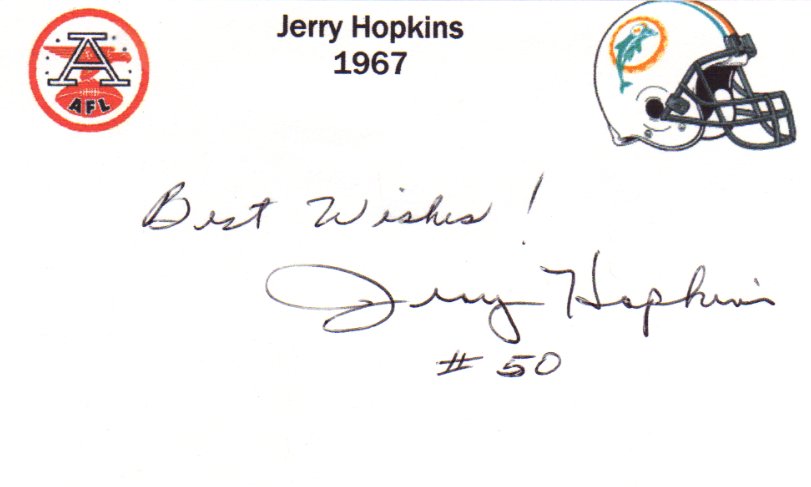 Jerry Hopkins
1967
A
AFL
Best Wishes !
Jerry Hopkins
# 50